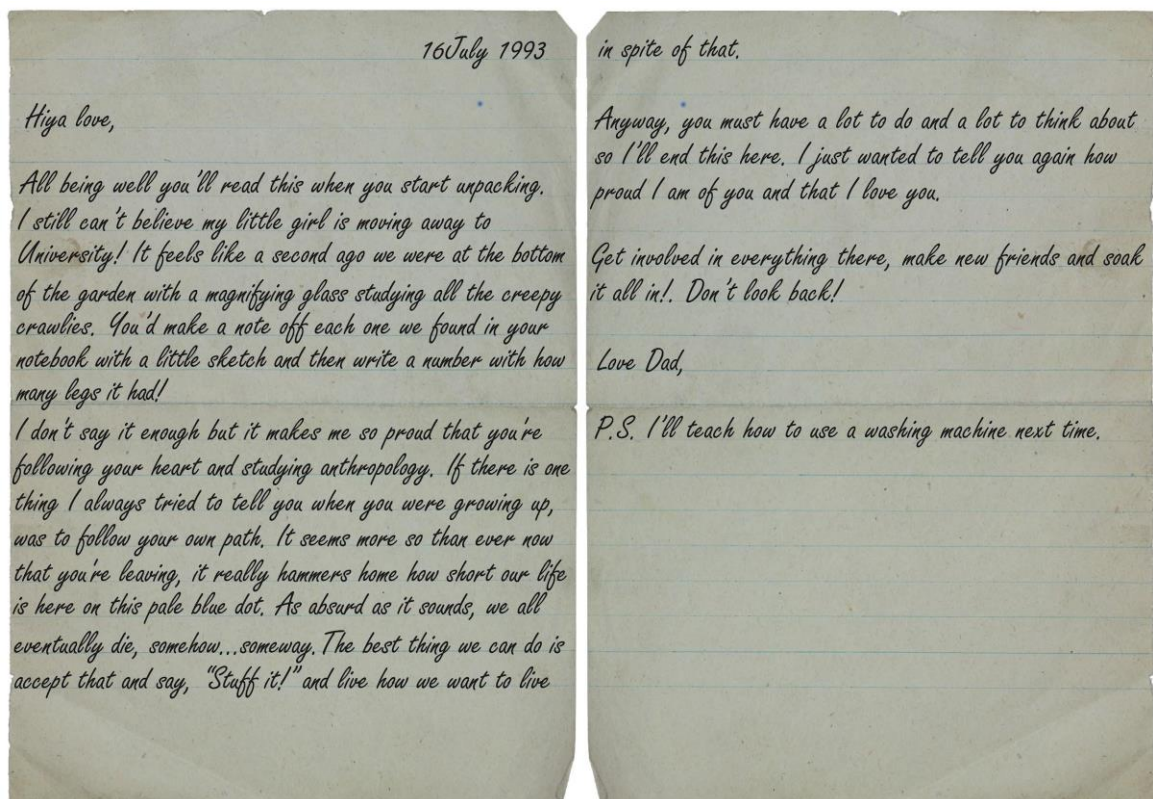 16July 1993
Hiya love,
All being well you'll read this when you start unpacking.
I still can't believe my little girl is moving away to
University! It feels like a second ago we were at the bottom
of the garden with a magnifying glass studying all the creepy
crawlies. You'd make a note off each one we found in your
notebook with a little sketch and then write a number with how
many legs it had!
I don't say it enough but it makes me so proud that you're
following your heart and studying anthropology. If there is one
thing I always tried to tell you when you were growing up,
was to follow your own path. It seems more so than ever now
that you're leaving, it really hammers home how short our life
is here on this pale blue dot. As absurd as it sounds, we all
eventually die, somehow...someway. The best thing we can do is
accept that and say, "Stuff it!" and live how we want to live
in spite of that.
Anyway, you must have a lot to do and a lot to think about
so I'll end this here. I just wanted to tell you again how
proud I am of you and that I love you.
Get involved in everything there, make new friends and soak
it all in!. Don't look back!
Love Dad,
P.S. I'll teach how to use a washing machine next time.